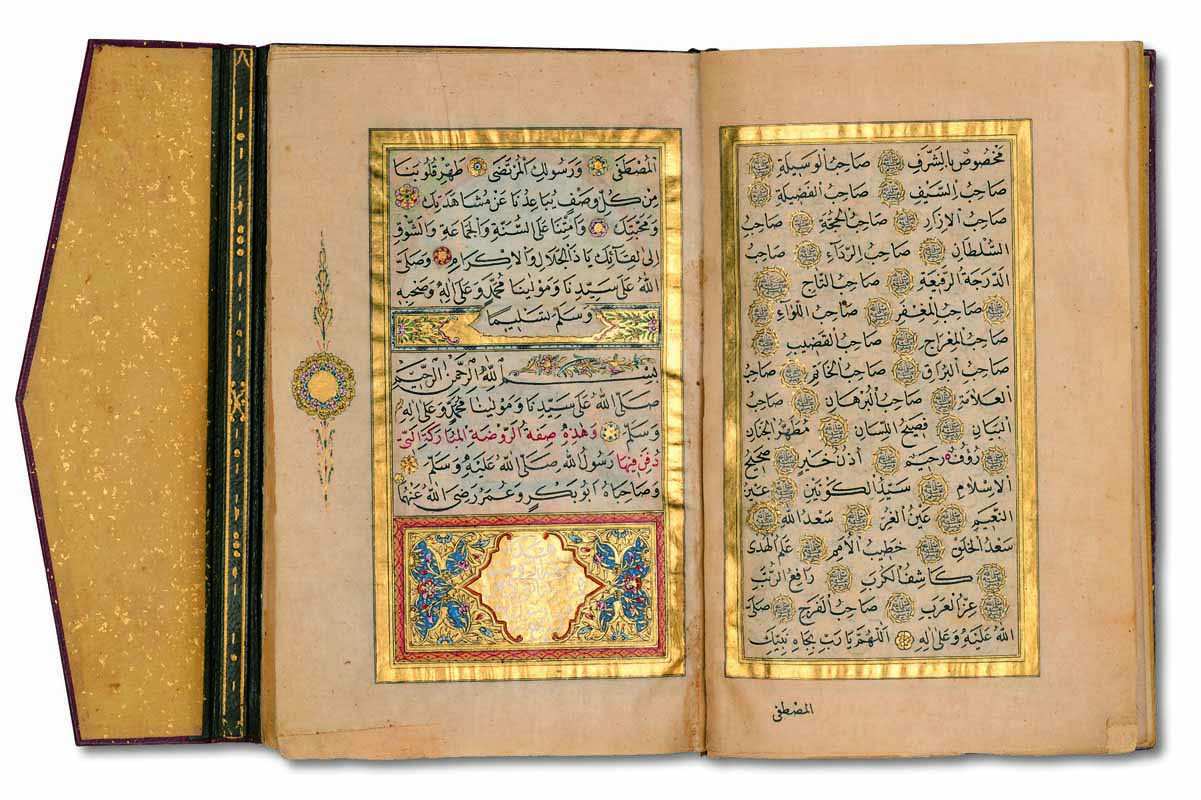 مَخْصُوصٌ بِالشَّرَفِ صَاحِبُ الْوَسِيلَةِ
صَاحِبُ السَّيْفِ صَاحِبُ الْفَضِيلَةِ
صَاحِبُ الْاِزَارِ صَاحِبُ الْحُجَّةِ صَاحِبُ
السُّلْطَانِ صَاحِبُ الرِّدَآءِ صَاحِبُ
الدَّرَجَةِ الرَّفِيعَةِ صَاحِبُ التَّاجِ
صَاحِبُ الْمِغْفَرِ صَاحِبُ اللِّوَآءِ
صَاحِبُ الْمِعْرَاجِ صَاحِبُ الْقَضِيبِ
صَاحِبُ الْبُرَاقِ صَاحِبُ الْخَاتَمِ صَاحِبُ
الْعَلَامَةِ صَاحِبُ الْبُرْهَانِ صَاحِبُ
الْبَيَانِ فَصِيحُ اللِّسَانِ مُطَهَّرُ الْجَنَانِ
رَؤُفٌ رَحِيمٌ اُذُنُ خَيْرٍ صَحِيحُ
الْاِسْلَامِ سَيِّدُ الْكَوْنَيْنِ عَيْنُ
النَّعِيمِ عَيْنُ الْغُرِّ سَعْدُ اللهِ
سَعْدُ الْخَلْقِ خَطِيبُ الْاُمَمِ عَلَمُ الْهُدٰى
كَاشِفُ الْكُرَبِ رَافِعُ الرُّتَبِ
عِزُّ الْعَرَبِ صَاحِبُ الْفَرَجِ صَلَّى
اللهُ عَلَيْهِ وَعَلٰى اٰلِهِ اَللّٰهُمَّ يَا رَبِّ بِجَاهِ نَبِيِّكَ
الْمُصْطَفٰى
الْمُصْطَفٰى وَرَسُولِكَ الْمُرْتَضٰى طَهِّرْ قُلُوبَنَا
مِنْ كُلِّ وَصْفٍ يُبَاعِدُنَا عَنْ مُشَاهَدَتِكَ
وَمَحَبَّتِكَ وَاَمِتْنَا عَلَى السُّنَّةِ وَالْجَمَاعَةِ وَالشَّوْقِ
اِلٰى لِقَآئِكَ يَا ذَا الْجَلَالِ وَالْاِكْرَامِ وَصَلَّى
اللهُ عَلٰى سَيِّدِنَا وَمَوْلٰينَا مُحَمَّدٍ وَعَلٰى اٰلِهِ وَصَحْبِهِ
وَسَلَّمَ تَسْلِيمًا
بِسْمِ اللهِ الرَّحْمٰنِ الرَّحِيمِ
صَلَّى اللهُ عَلٰى سَيِّدِنَا وَمَوْلٰينَا مُحَمَّدٍ وَعَلٰى اٰلِهِ
وَسَلَّمَ وَهٰذِهِ صِفَةُ الرَّوْضَةِ الْمُبَارَكَةِ الَّتِي
دُفِنَ فِيهَا رَسُولُ اللهِ صَلَّى اللهُ عَلَيْهِ وَسَلَّمَ
وَصَاحِبَاهُ اَبُو بَكْرٍ وَعُمَرُ رَضِيَ اللهُ عَنْهُمَا